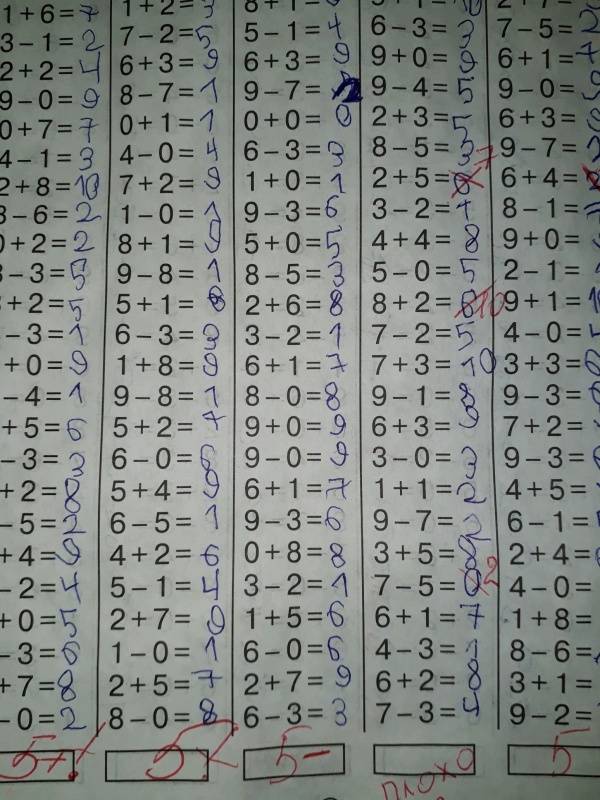 1+6=7
3-1=2
2+2=4
9-0=9
0+7=7
4-1=3
2+8=10
8-6=2
0+2=2
-3=5
+2=5
-3=1
+0=9
-4=1
+5=6
-3=3
+2=8
-5=2
+4=6
-2=4
+0=5
-3=6
+7=8
-0=2
5+!
1+2=3
7-2=5
6+3=9
8-7=1
0+1=1
4-0=4
7+2=9
1-0=1
8+1=9
9-8=1
5+1=6
6-3=3
1+8=9
9-8=1
5+2=7
6-0=6
5+4=9
6-5=1
4+2=6
5-1=4
2+7=9
1-0=1
2+5=7
8-0=8
5
8+1=
5-1=4
6+3=9
9-7=2
0+0=0
6-3=3
1+0=1
9-3=6
5+0=5
8-5=3
2+6=8
3-2=1
6+1=7
8-0=8
9+0=9
9-0=9
6+1=7
9-3=6
0+8=8
3-2=1
1+5=6
6-0=6
2+7=9
6-3=3
5-
6-3=3
9+0=9
9-4=5
2+3=5
8-5=3
2+5=7
3-2=1
4+4=8
5-0=5
8+2=10
7-2=5
7+3=10
9-1=8
6+3=9
3-0=3
1+1=2
9-7=2
3+5=8
7-5=2
6+1=7
4-3=1
6+2=8
7-3=
плохо
7-5=2
6+1=7
9-0=9
6+3=
9-7=2
6+4=
8-1=7
9+0=
2-1=
9+1=1
4-0=
3+3=6
9-3=
7+2=
9-3=
4+5=
6-1=
2+4=
4-0=
1+8=
8-6=
3+1=
9-2=
5